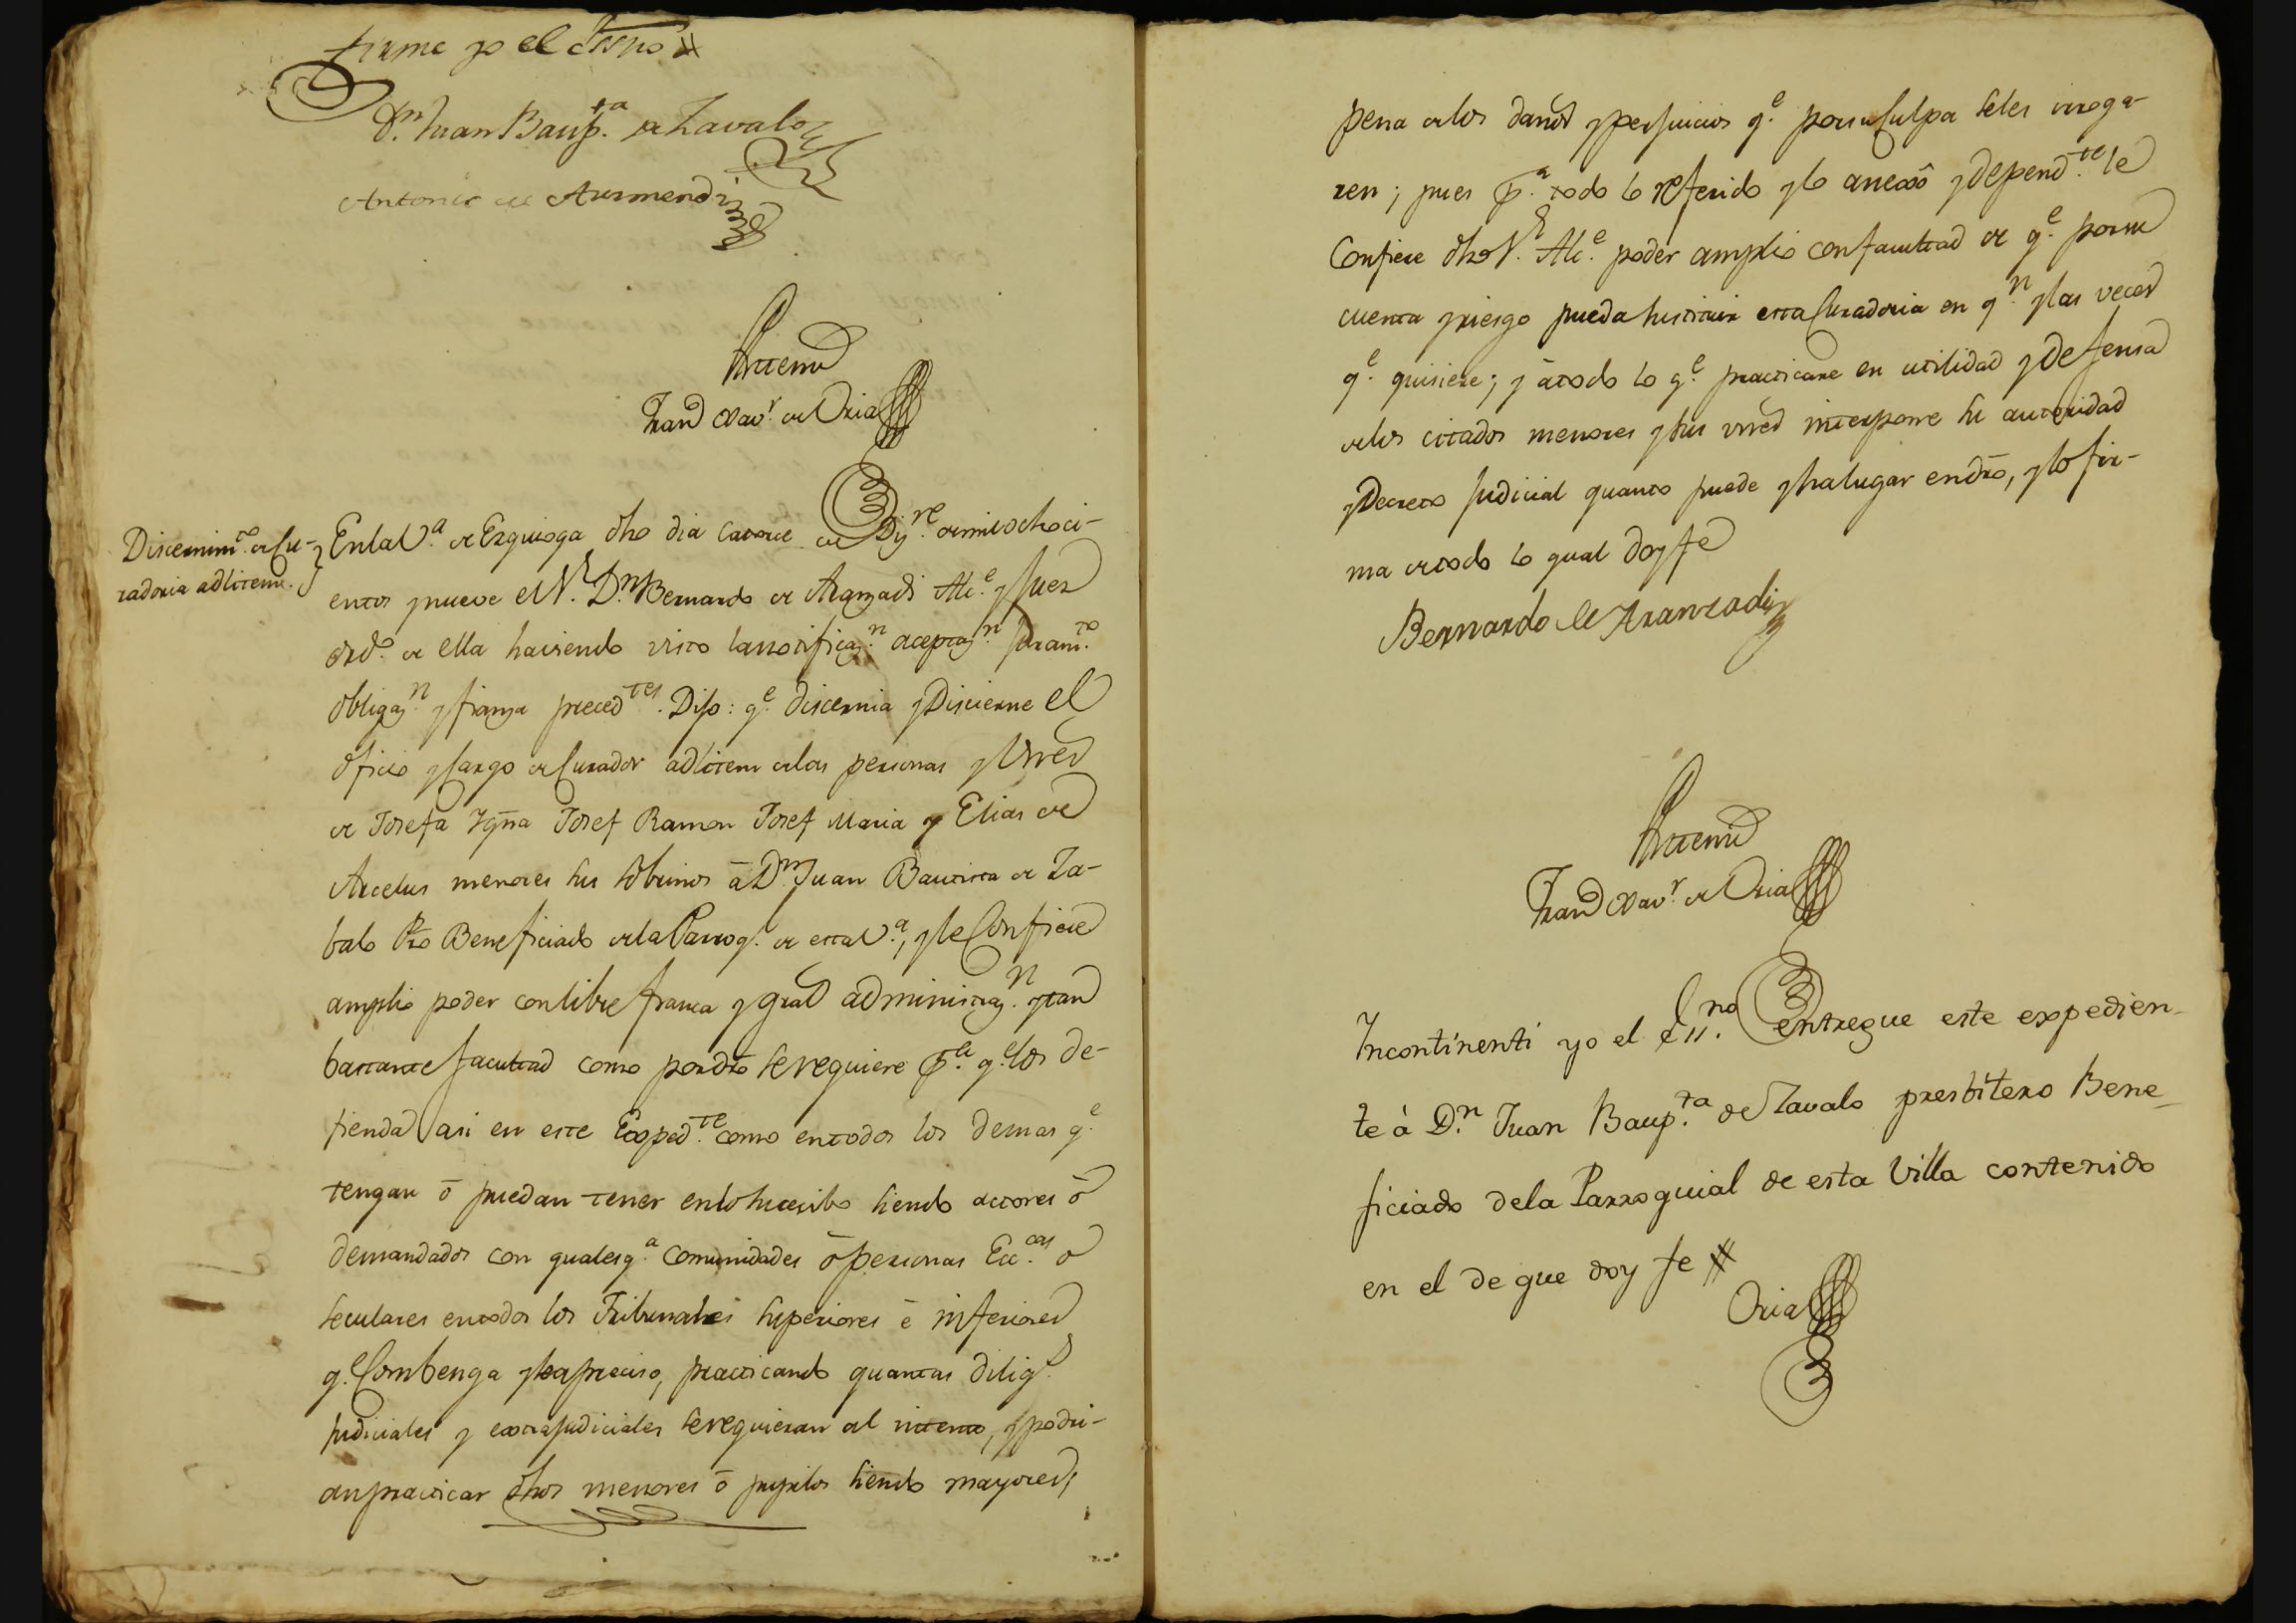 firme yo el Essno #
Dn. Juan Baup.ta de Zavalo
Antonio de Aurmendi
Ante mi
Fran.co Xav.r de Oria
Discernimto. de Cu-
radoria adlitem.
En la V.a de Ezquioga dho dia catorce de Diz.re de mil ochoci-
entos y nueve el S.r D.n Bernardo de Aranzadi Alc.e y Juez
ord.o de ella haviendo visto la notificaz.n aceptaz.n juram.to
obligaz.n y fianza preced.tes. Dijo: q.e discernia y Discierne el
oficio y cargo de Curador adlitem de las personas y vnes
de Josefa Ygna Josef Ramon Josef Maria y Elias de
Arcelus menores sus sobrinos â D.n Juan Bautista de Za-
balo Pro Beneficiado de la Parroq.l de esta V.a, y le Confiere
amplio poder con libre franca y gral administraz.n y tan
bastante facultad como por dro se requiere p.a q.e los de-
fienda asi en este Exped.te como en todos los demas q.e
tengan ô puedan tener en lo sucesibo siendo actores ô
demandados con qualesq.a comunidades ô personas Ecc.cas o
seculares en todos los Tribunales superiores ê inferiores
q.e Combenga y sea preciso, practicando quantas dilig.s
judiciales y extrajudiciales se requieran al intento, y podri-
an practicar dhos menores ô pupilos siendo mayores,
pena de los daños y perjuicios q.e por su Culpa se les irroga-
ren; pues p.a todo lo referido y lo anexô y depend.te le
Confiere dho S.r Alc.e poder amplio con facultad de q.e por su
cuenta y riesgo pueda sustituir esta Curadoria en q.n y las veces
q.e quisiere; y â todo lo q.e practicare en utilidad y defensa
de los citados menores y sus vnes interpone su autoridad
y Decreto judicial quanto puede y ha lugar en dro, y lo fir-
ma de todo lo qual doy fe
Bernardo de Aranzadi
Ante mi
Fran.co Xav.r de Oria
Incontinenti yo el Ess.no entregue este expedien-
te à D.n Juan Baup.ta de Zavalo presbitero Bene-
ficiado dela Parroquial de esta Villa contenido
en el de que doy fe #
Oria